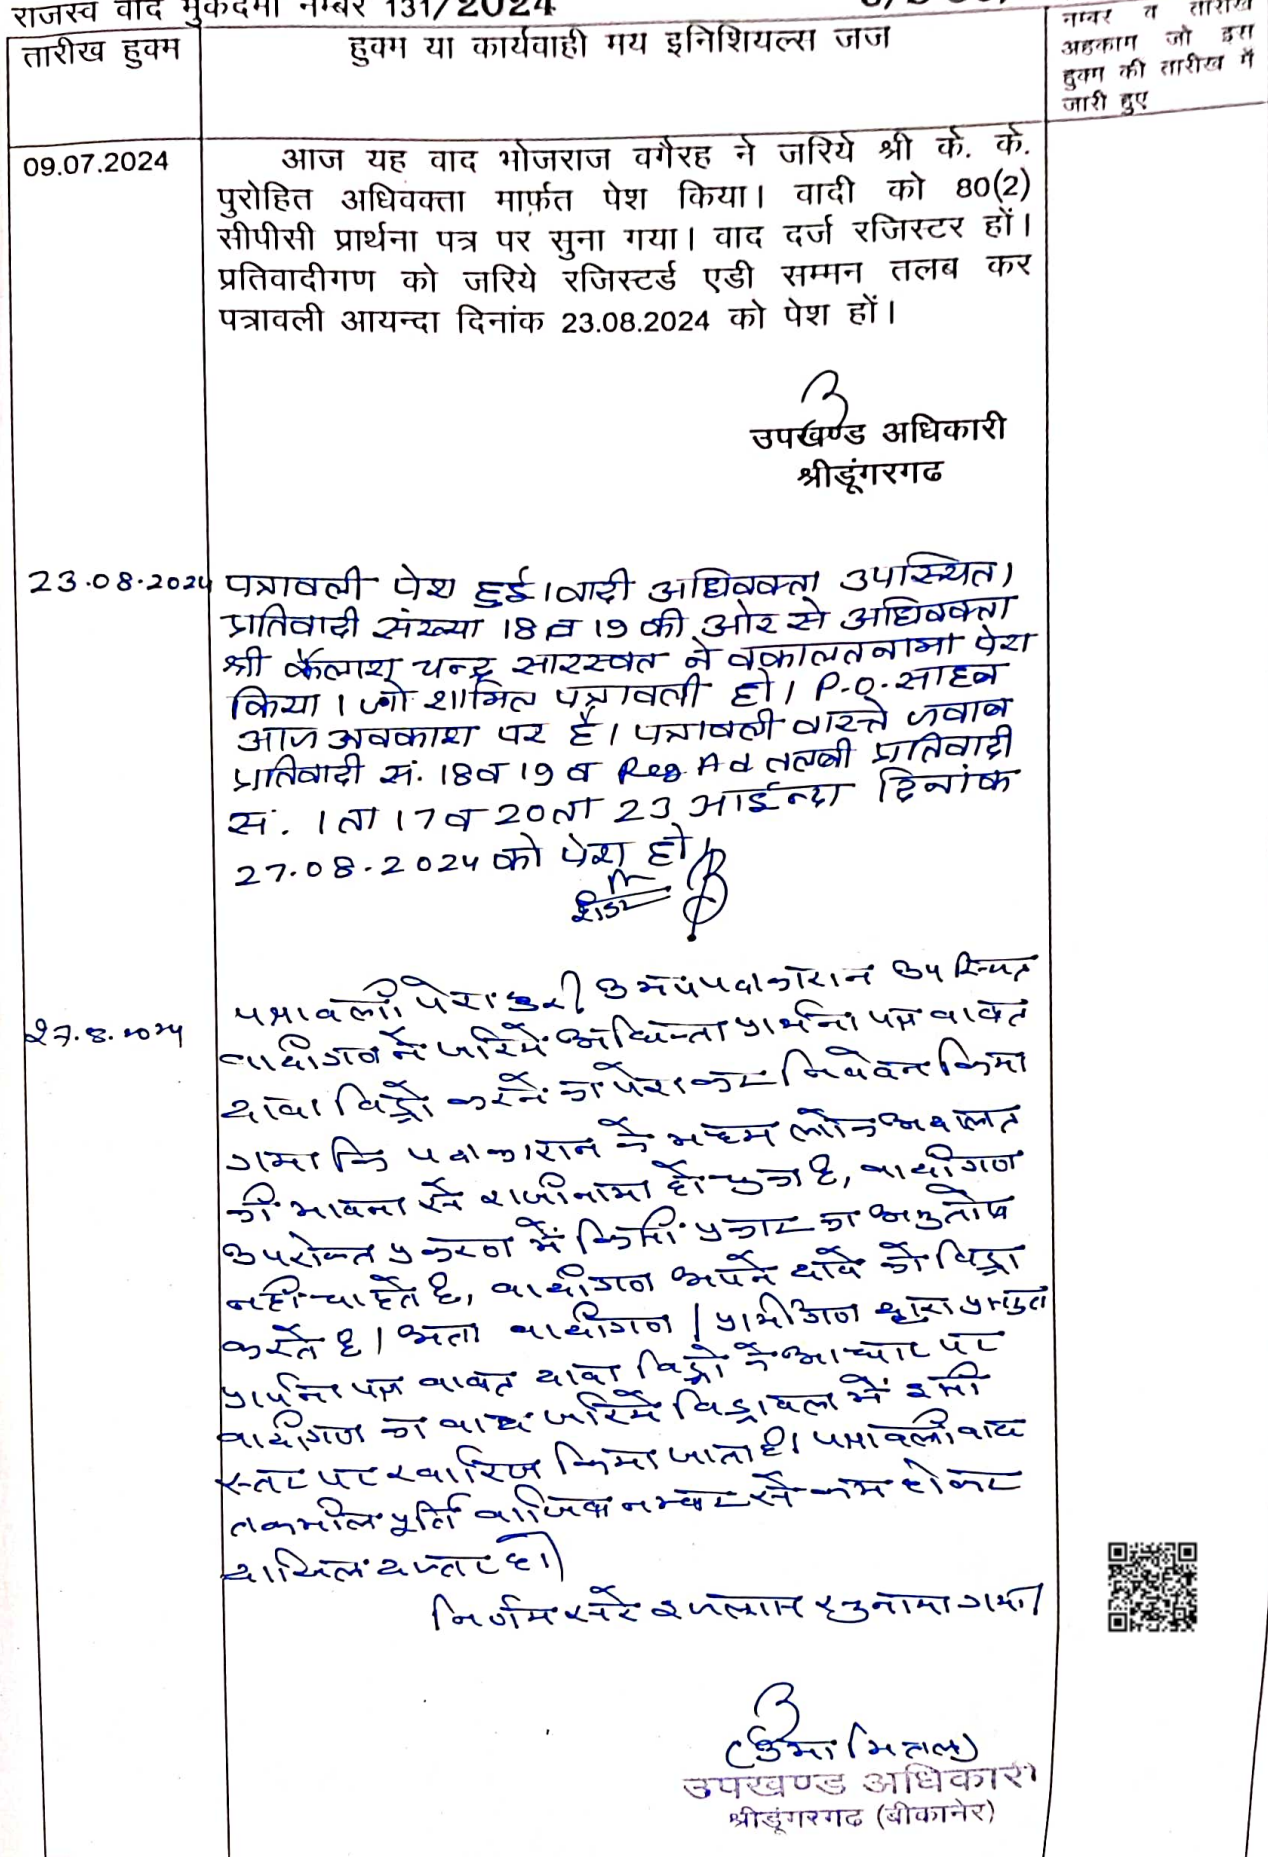 राजस्व वाद मुकदमा नम्बर 131/2024
तारीख हुक्म
हुक्म या कार्यवाही मय इनिशियल्स जज
नम्बर व तारीख
अहकाम जो इस
हुक्म की तारीख में
जारी हुए
09.07.2024
आज यह वाद भोजराज वगैरह ने जरिये श्री के. के.
पुरोहित अधिवक्ता मार्फ़त पेश किया। वादी को 80(2)
सीपीसी प्रार्थना पत्र पर सुना गया। वाद दर्ज रजिस्टर हों।
प्रतिवादीगण को जरिये रजिस्टर्ड एडी सम्मन तलब कर
पत्रावली आयन्दा दिनांक 23.08.2024 को पेश हों।
उपखण्ड अधिकारी
श्रीडूंगरगढ
23.08.2024
पत्रावली पेश हुई। वादी अधिवक्ता उपस्थित।
प्रतिवादी संख्या 18 व 19 की ओर से अधिवक्ता
श्री कैलाश चन्द्र सारस्वत ने वकालतनामा पेश
किया। जो शामिल पत्रावली हो। P.O. साहब
आज अवकाश पर है। पत्रावली वास्ते जवाब
प्रतिवादी सं. 18 व 19 व Reg Ad तलबी प्रतिवादी
सं. 1 ता 17 व 20 ता 23 आईन्दा दिनांक
27.08.2024 को पेश हो।
27.8.2024
पत्रावली पेश हुई। उभयपक्षकारान उपस्थित
वादीगण ने जरिये अधिवक्ता प्रार्थना पत्र बाबत
दावा विड्रो करने का पेश कर निवेदन किया
गया कि पक्षकारान के मध्य लोक अदालत
की भावना से राजीनामा हो चुका है, वादीगण
उपरोक्त प्रकरण में किसी प्रकार का अनुतोष
नहीं चाहते है, वादीगण अपने दावे को विड्रा
करते है। अतः वादीगण / प्रार्थीगण द्वारा प्रस्तुत
प्रार्थना पत्र बाबत दावा विड्रो के आधार पर
वादीगण का वाद जरिये विड्रावल में इसी
स्तर पर खारिज किया जाता है। पत्रावली बाद
तकमील पूर्ति वाजिब नम्बर से कम होकर
दाखिल दफ्तर हो।
निर्णय सरे इजलास सुनाया गया।
(उमा मित्तल)
उपखण्ड अधिकारी
श्रीडूंगरगढ (बीकानेर)